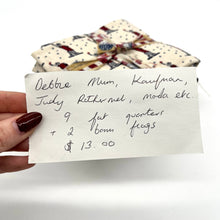 Debbie Mum, Kaufman,
Judy Rothermel, moda etc.
9 fat quarters
+ 2 bonus frags
$ 13.00